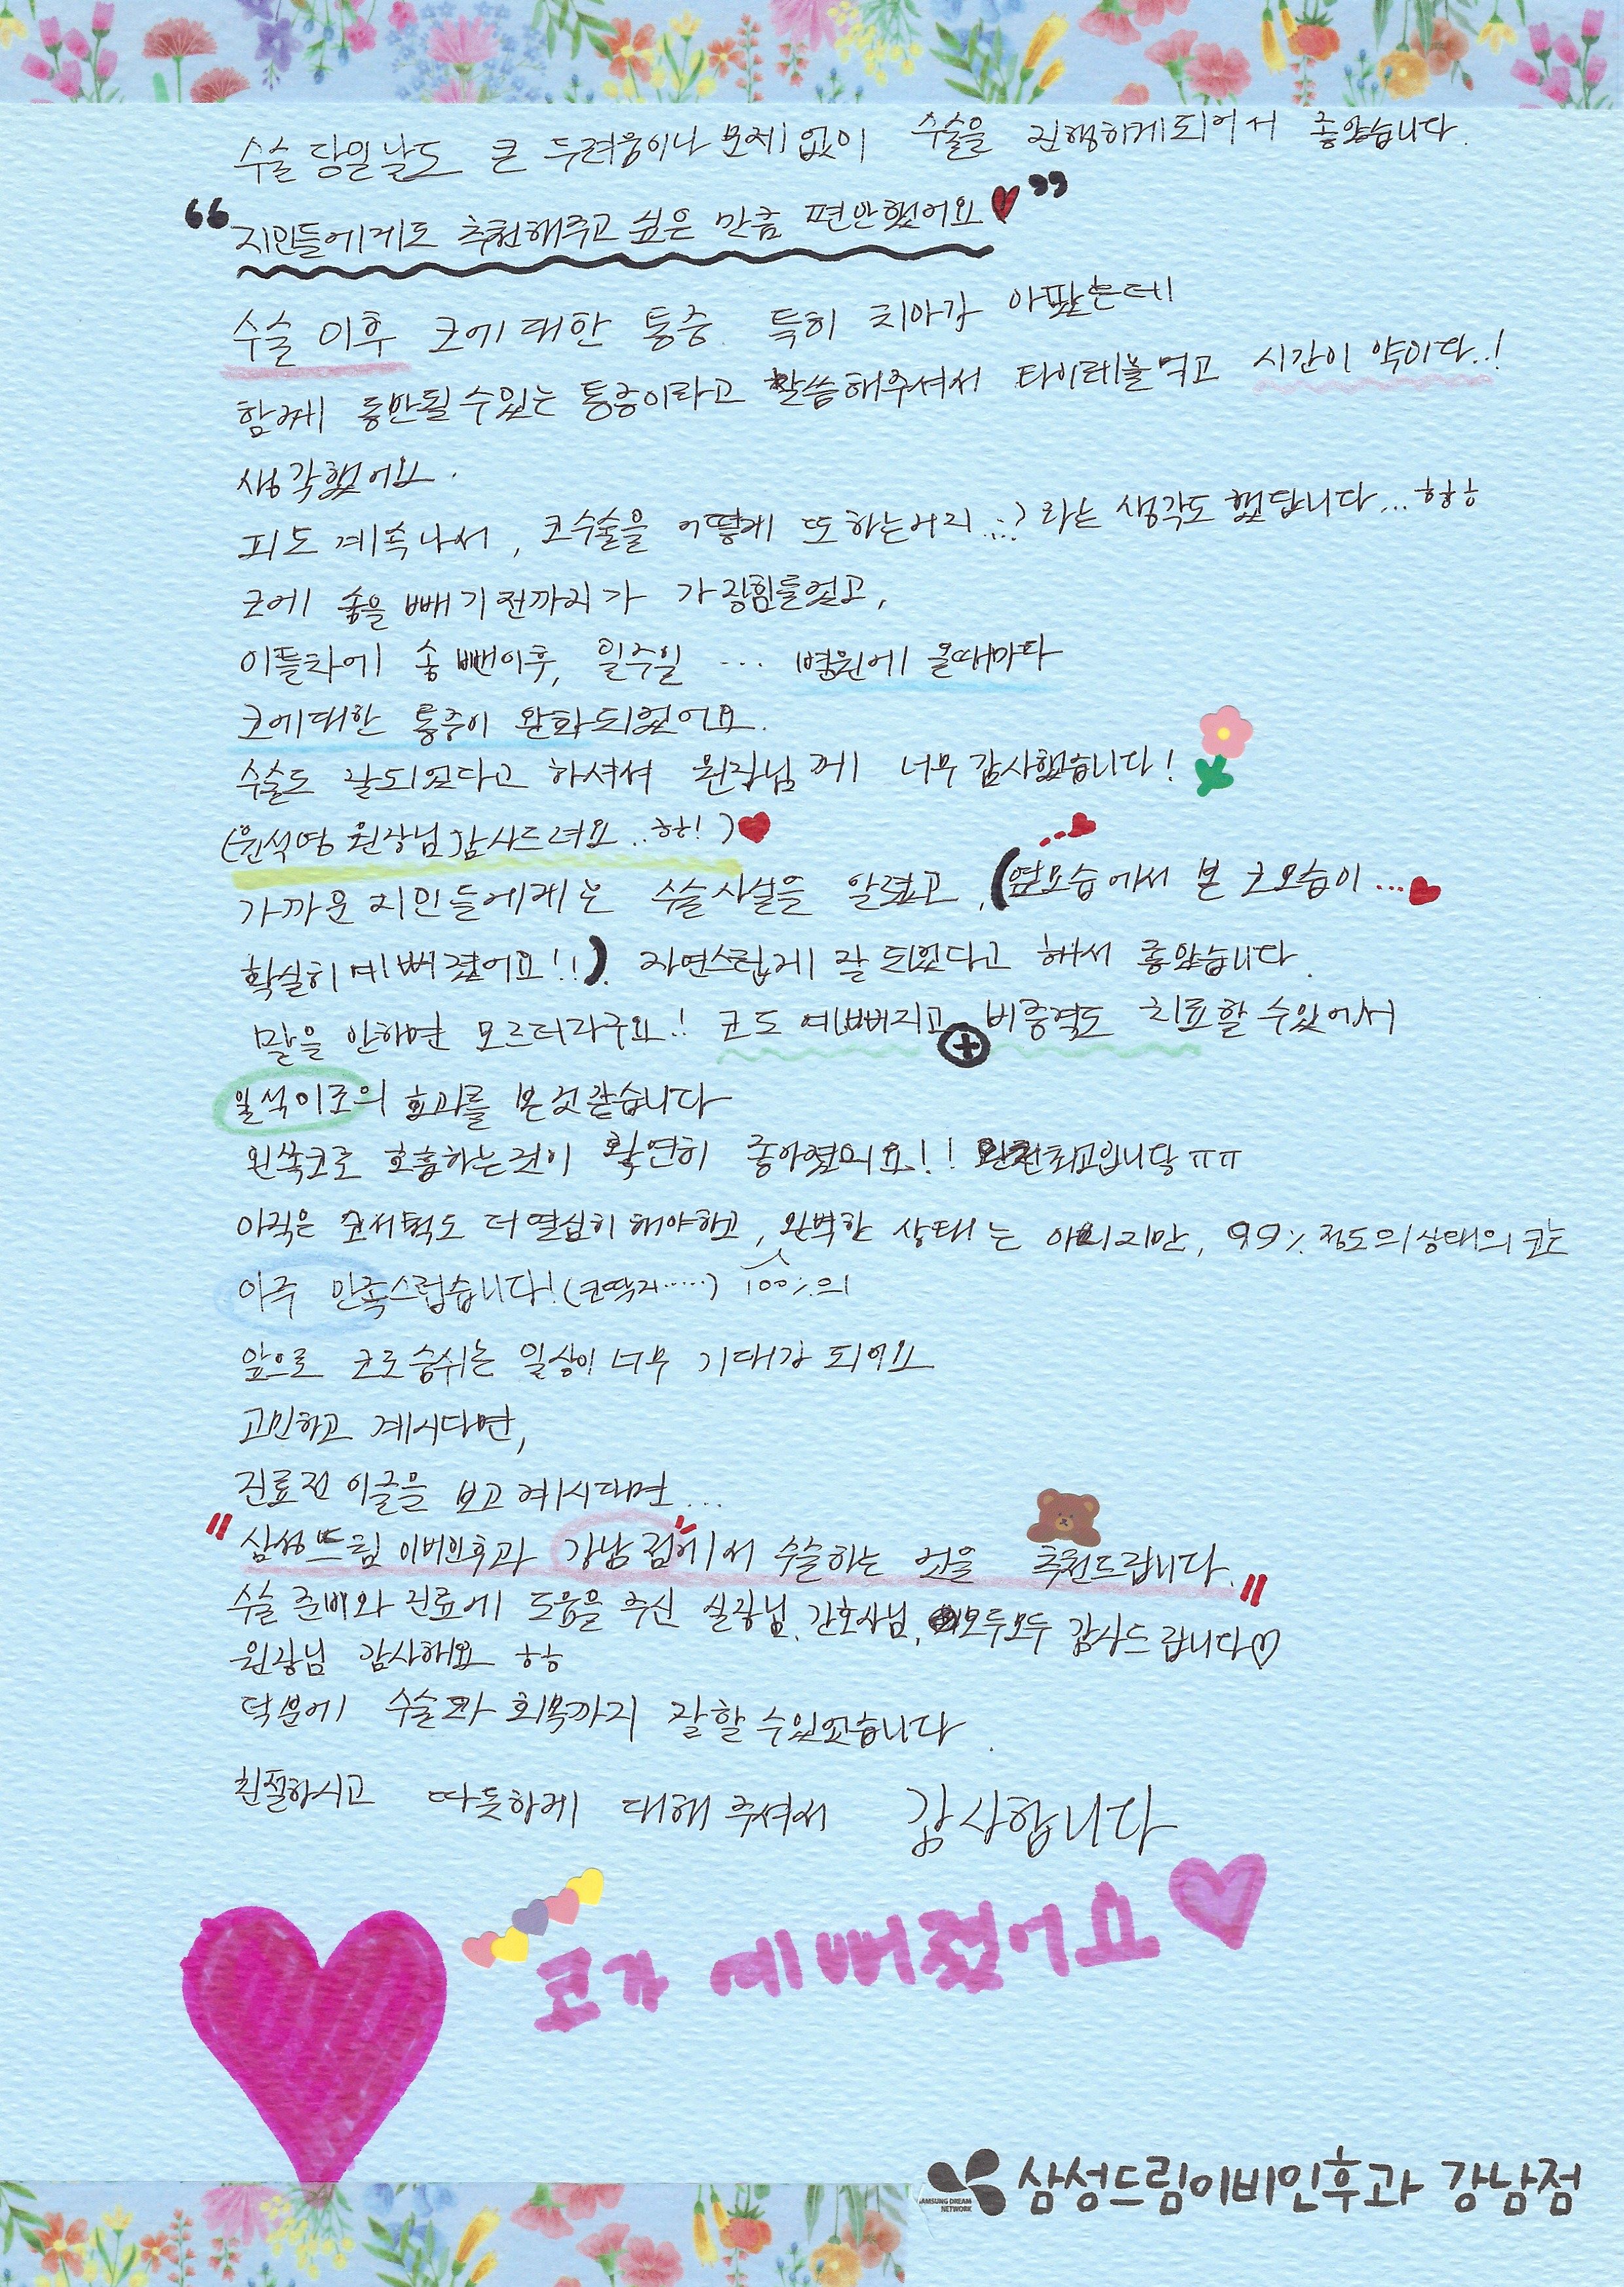 수술 당일날도 큰 두려움이나 문제없이 수술을 진행하게되어서 좋았습니다.
“지인들에게도 추천해주고 싶은 만큼 편안했어요”
수술 이후 코에대한 통증. 특히 치아가 아팠는데
함께 동반될수있는 통증이라고 말씀해주셔서 타이레놀먹고 시간이 약이다..!
생각했어요.
피도 계속나서, 코수술을 어떻게 또 하는거지..? 라는 생각도 했답니다...ㅎㅎㅎ
코에 솜을 빼기전까지가 가장힘들었고,
이틀차에 솜 뺀이후, 일주일 ... 병원에 올때마다
코에대한 통증이 완화되었어요.
수술도 잘되었다고 하셔서 원장님께 너무감사했습니다!
(윤석영 원장님 감사드려요..ㅎㅎ!)
가까운 지인들에게는 수술사실을 알렸고, (옆모습에서 본 코모습이...
확실히 예뻐졌어요!!). 자연스럽게 잘되었다고 해서 좋았습니다.
말을 안하면 모르더라구요! 코도 예뻐지고 + 비중격도 치료할수있어서
일석이조의 효과를 본것같습니다
왼쪽코로 호흡하는것이 확연히 좋아졌어요!! 완전최고입니당ㅠㅠ
아직은 코세척도 더 열심히해야하고, 완벽한 상태는 아니지만, 99% 정도의상태의 코는
아주 만족스럽습니다! (코딱지.....) 100%의
앞으로 코로숨쉬는 일상이 너무 기대가 되어요
고민하고 계시다면,
진료전 이글을 보고계시다면...
"삼성드림 이비인후과 강남점에서 수술하는 것을 추천드립니다."
수술 준비와 진료에 도움을 주신 실장님, 간호사님, 모두모두 감사드립니다♡
원장님 감사해요 ㅎㅎ
덕분에 수술과 회복까지 잘할수있었습니다.
친절하시고 따듯하게 대해주셔서 감사합니다
코가 예뻐졌어요
SAMSUNG DREAM NETWORK
삼성드림이비인후과 강남점